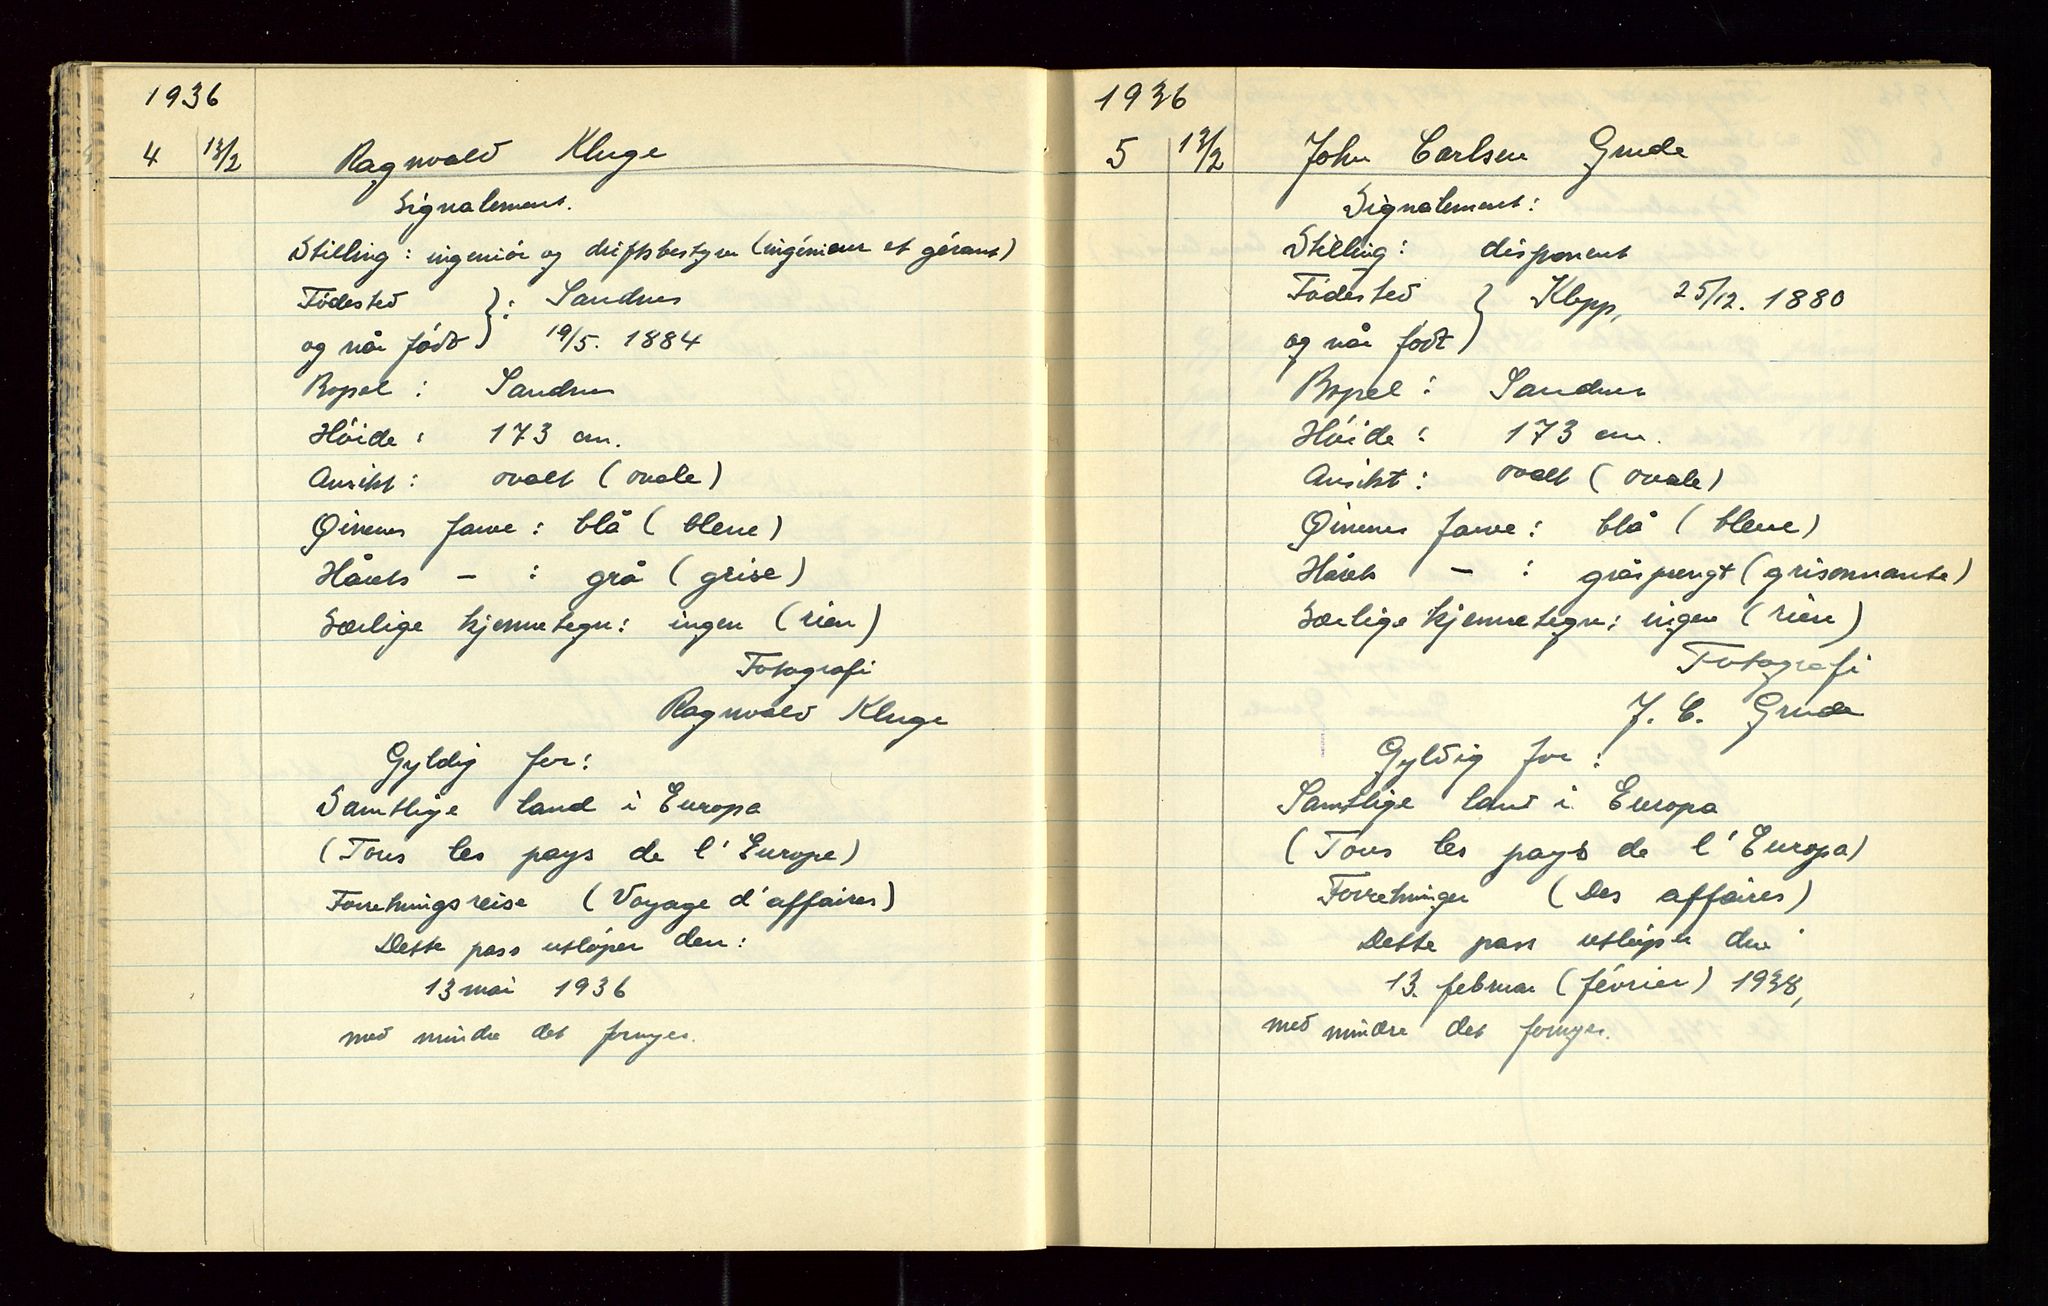 1936
4 13/2 Ragnvald Kluge
Signalement.
Stilling: ingeniör og driftsbestyrer (ingénieur et gérant)
Födested } : Sandnes
og når födt } 19/5. 1884
Bopel: Sandnes
Höide: 173 cm.
Ansikt: ovalt (ovale)
Øinenes farve: blå (bleue)
Hårets – : grå (grise)
Særlige kjennetegn: ingen (rien)
Fotografi
Ragnvald Kluge
Gyldig for:
Samtlige land i Europa
(Tous les pays de l'Europe)
Forretningsreise (Voyage d'affaires)
Dette pass utløper den:
13 mai 1936
med mindre det fornyes.
1936
5 13/2 John Carlsen Grude
Signalement:
Stilling: disponent
Födested } Klepp, 25/12. 1880
og når födt }
Bopel: Sandnes
Höide: 173 cm.
Ansikt: ovalt (ovale)
Øinenes farve: blå (bleue)
Hårets – : gråsprengt (grisonnante)
Særlige kjennetegn: ingen (rien)
Fotografi
J. C. Grude
Gyldig for:
Samtlige land i Europa
(Tous les pays de l'Europa)
Forretninger (Des affaires)
Dette pass utløper den
13. februar (février) 1938,
med mindre det fornyes.